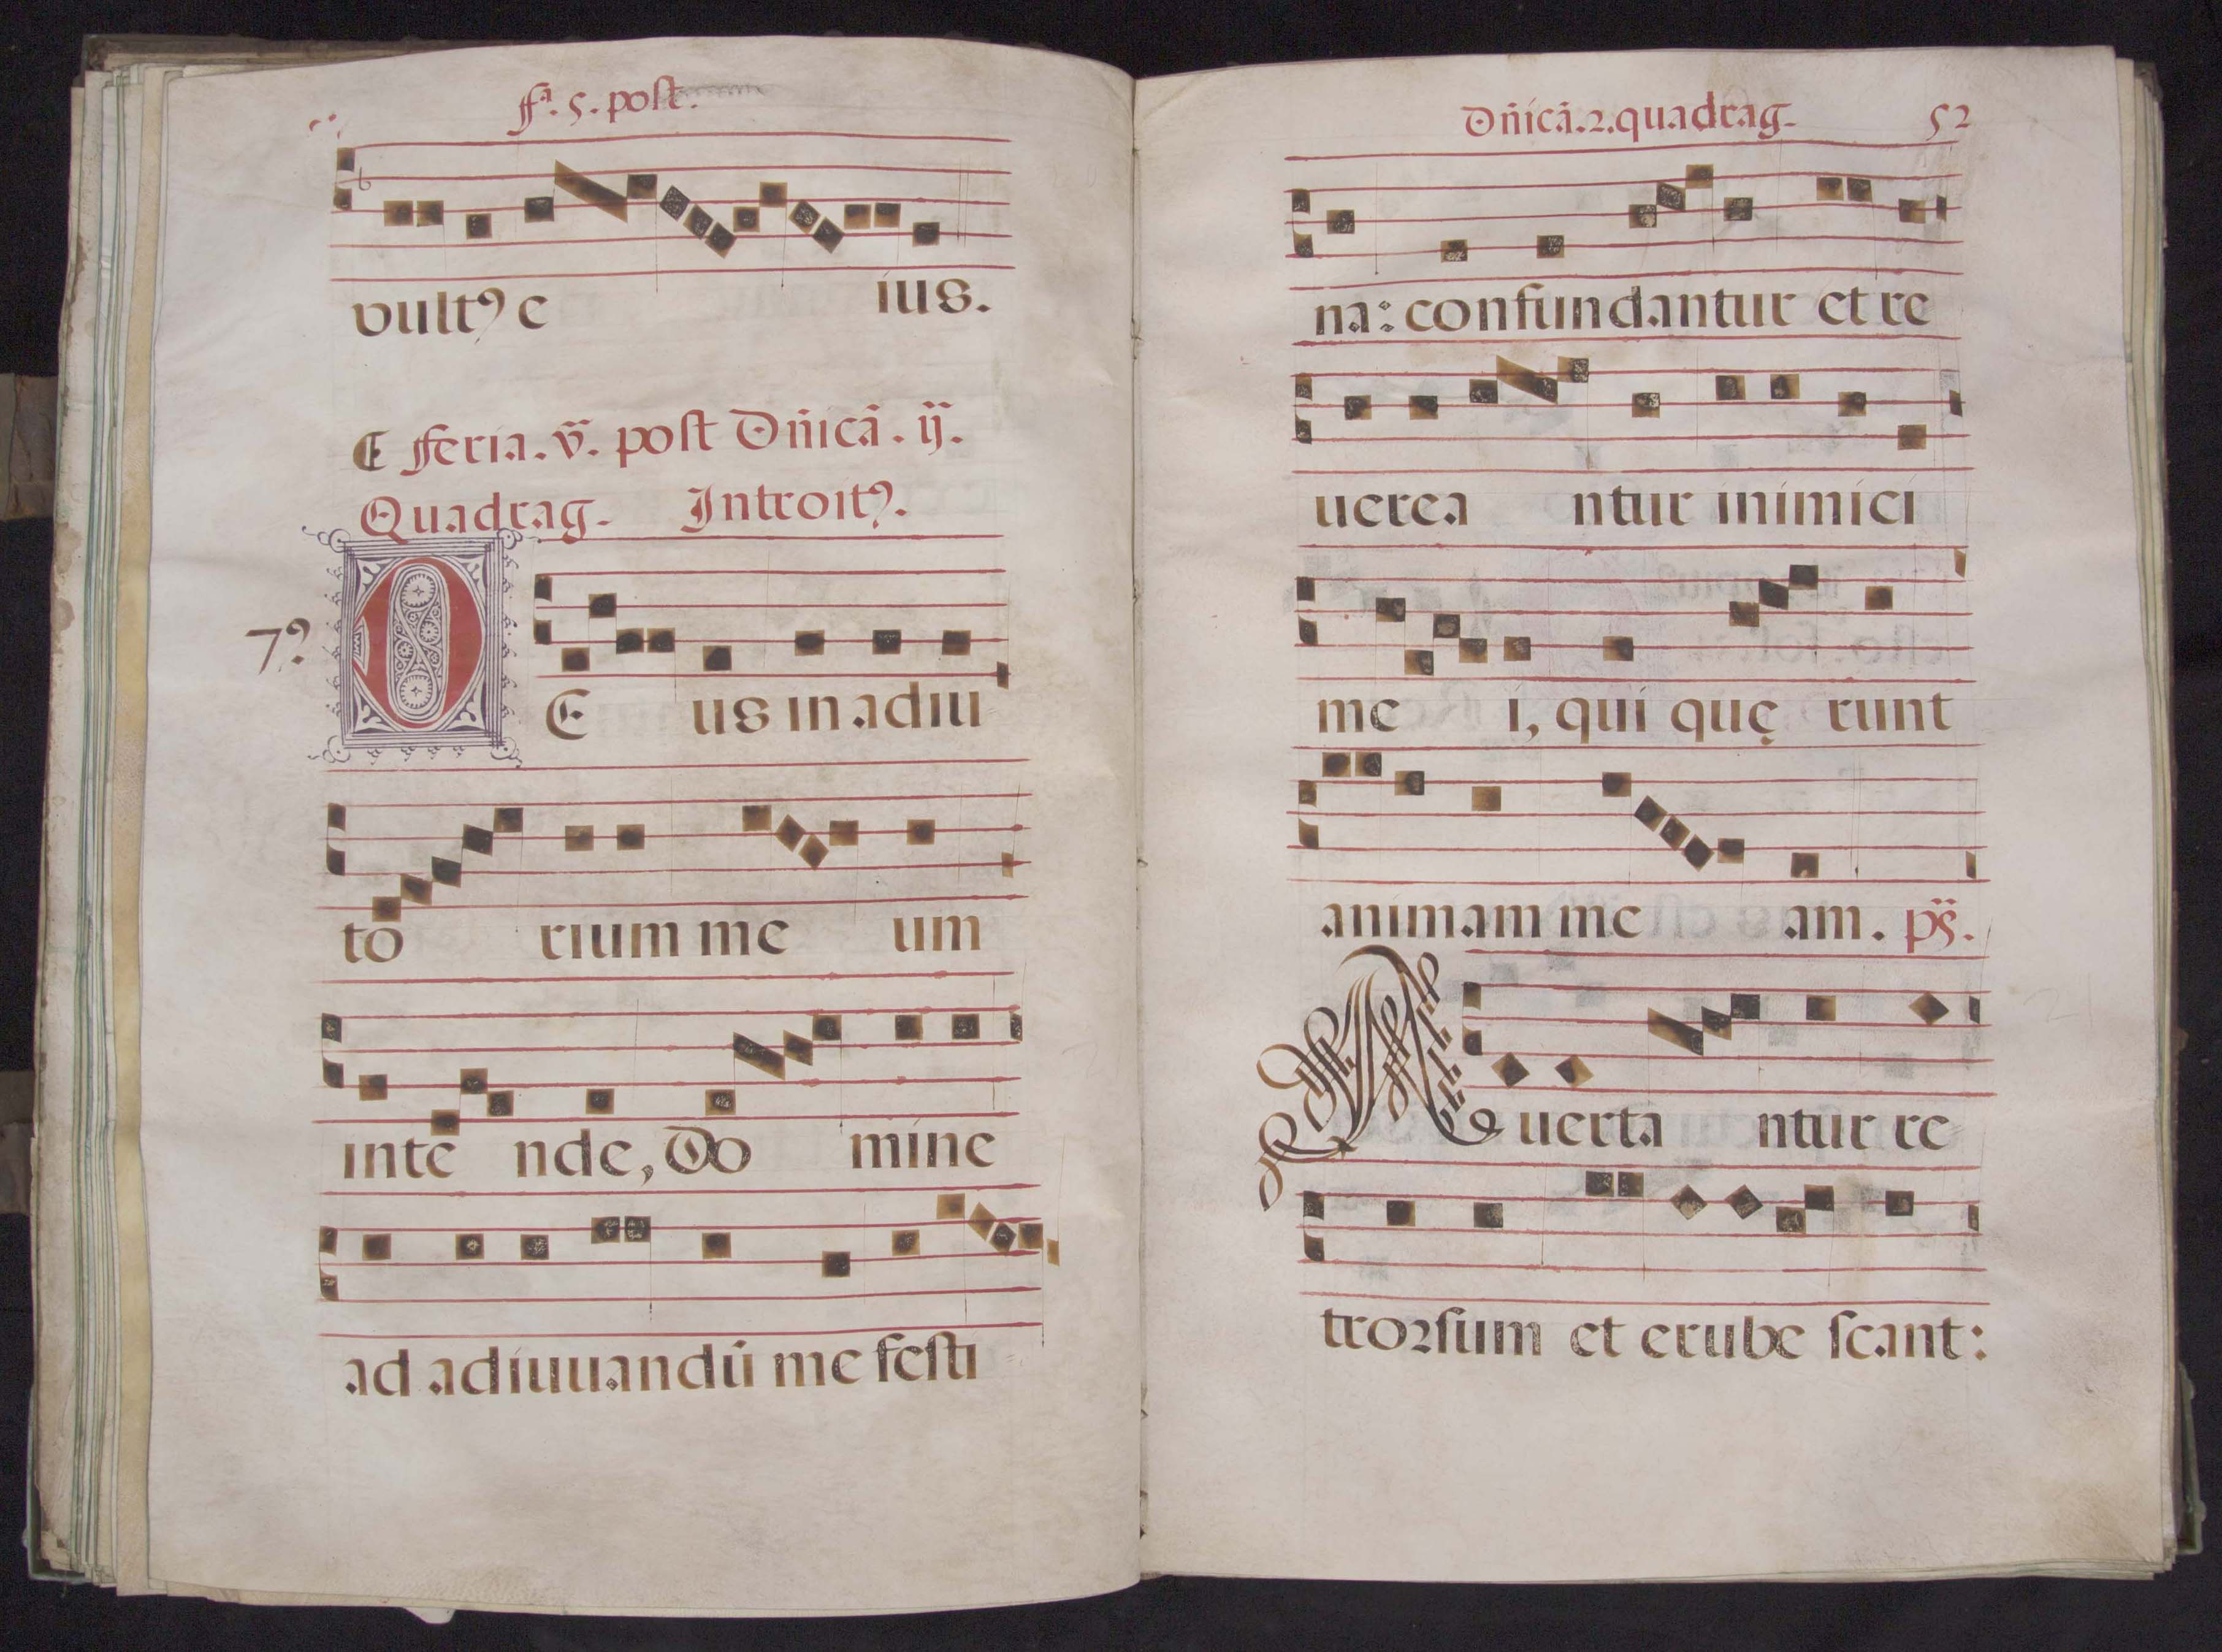 fª. 5. post.
vultꝰ e ius.
¶ feria. v̄. post Dn̄icā. ij̈.
Quadrag. Introitꝰ.
7º
DE us in adiu
to rium me um
inte nde, Do mine
ad adiuuandū me festi
Dn̄icā. 2. quadrag. 52
na: confundantur et re
uerea ntur inimici
me i, qui quę runt
animam me am. ps̈.
Auerta ntur re
trorsum et erube scant: